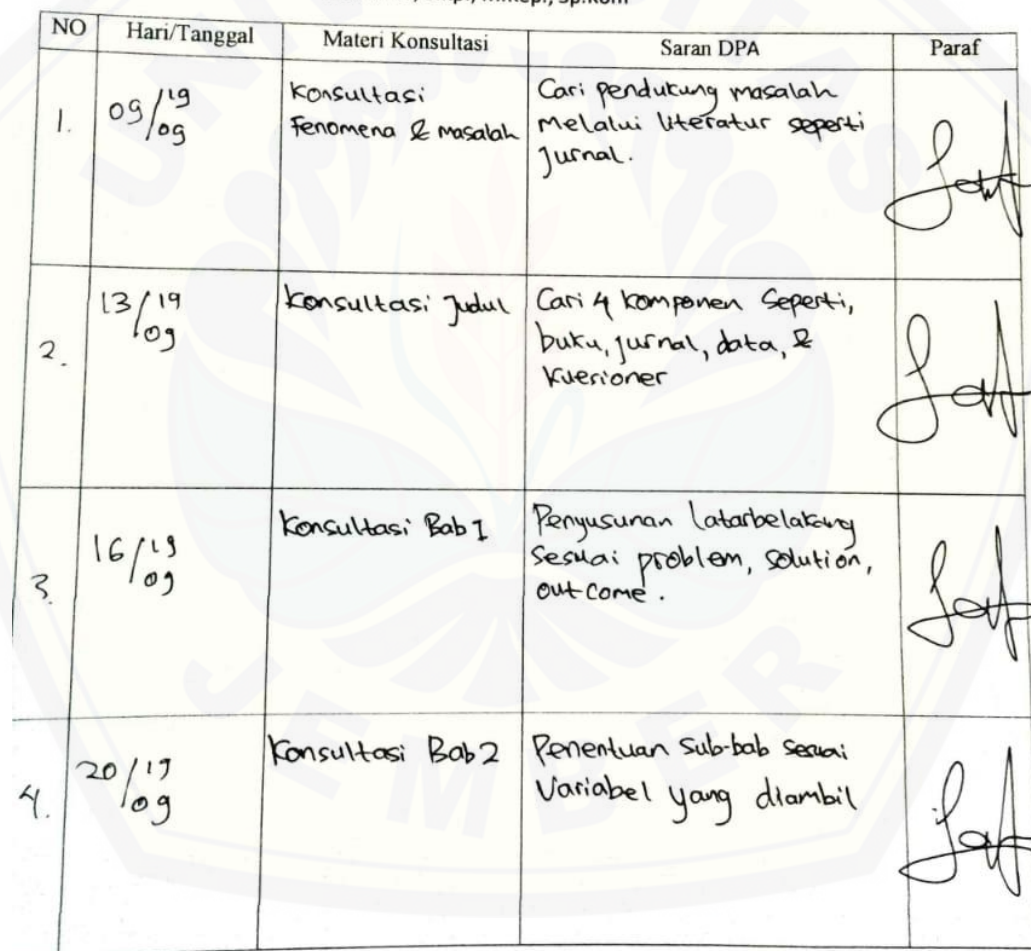 NO Hari/Tanggal Materi Konsultasi Saran DPA Paraf
1. 09/19 09 Konsultasi fenomena & masalah
Cari pendukung masalah
melalui literatur seperti
Jurnal.
2. 13/19 09 Konsultasi Judul
Cari 4 komponen Seperti,
buku, jurnal, data, &
kuesioner
3. 16/19 09 Konsultasi Bab 1
Penyusunan latarbelakang
Sesuai problem, solution,
outcome.
4. 20/19 09 Konsultasi Bab 2
Penentuan sub-bab sesuai
Variabel yang diambil
JEMBER